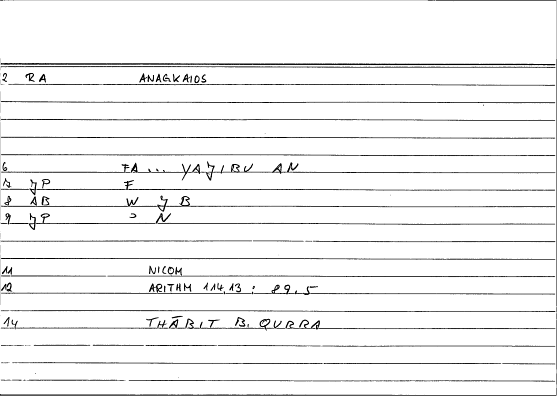 2 RA ANAGKAIOS
6 FA ... YAJIBU AN
7 JP F
8 AB W J B
9 JP ɔ N
11 NICOM
12 ARITHM 114,13 : 89.5
14 THĀBIT B. QURRA